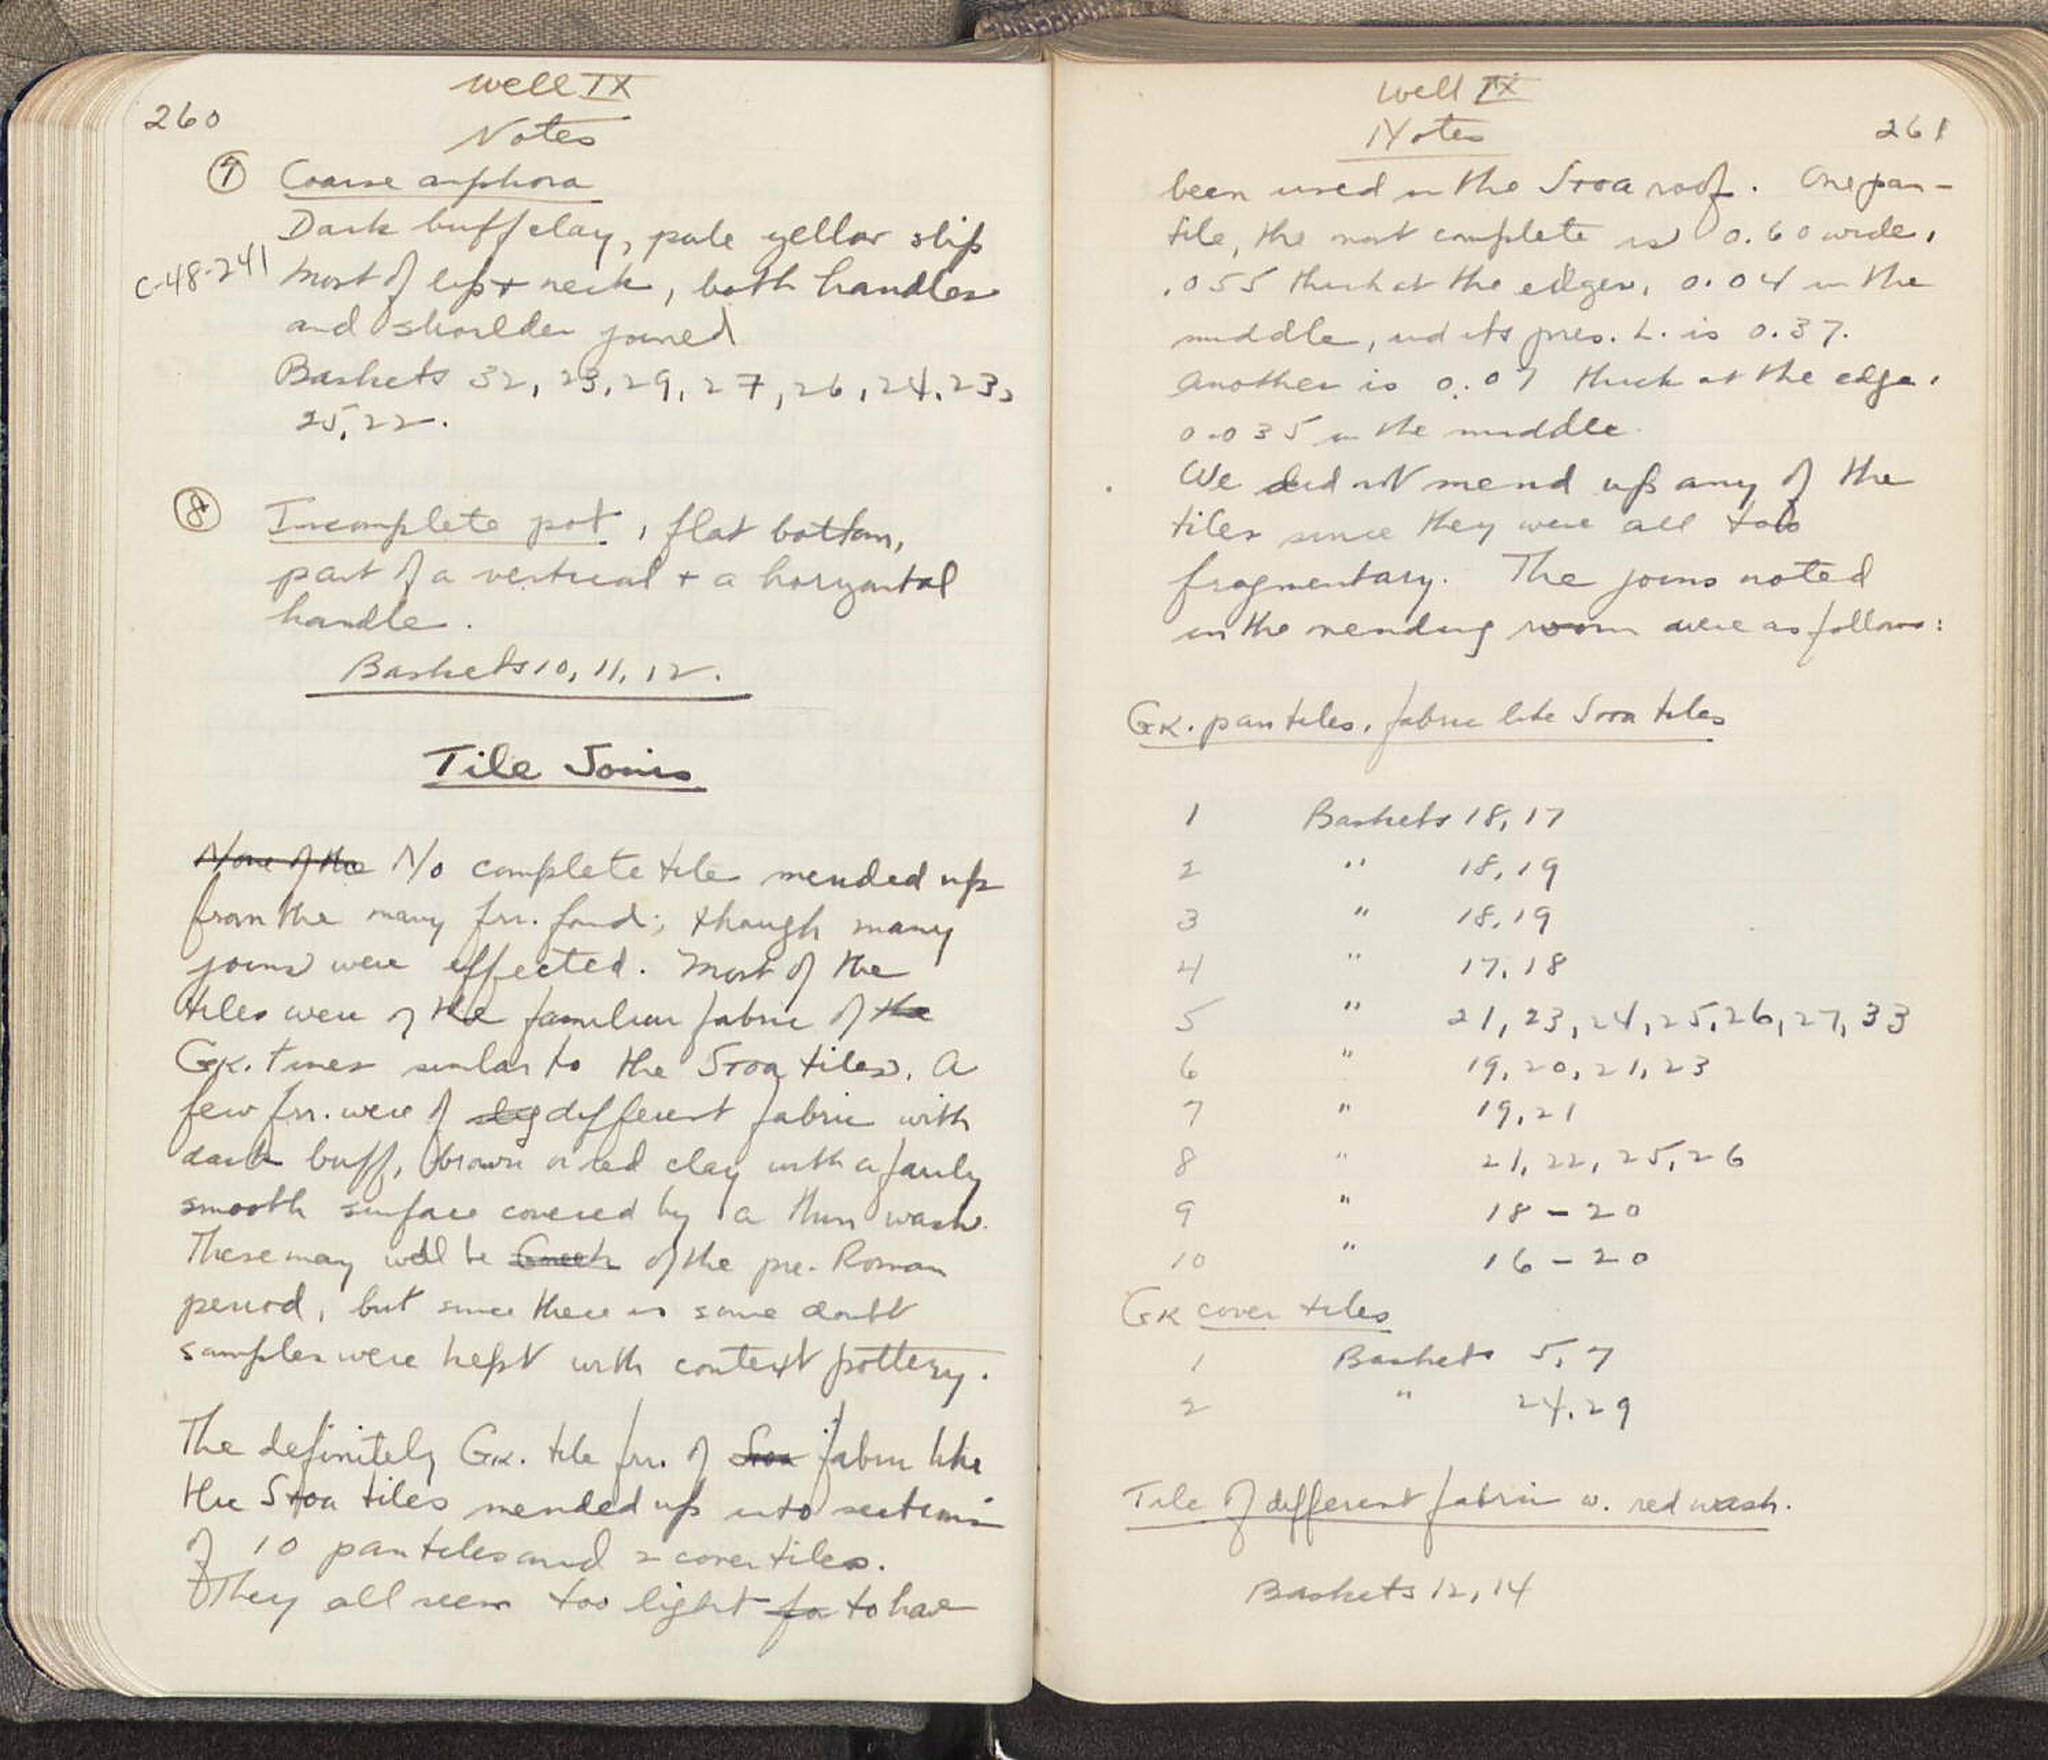 Well IX
260
Notes
⑦ Coarse amphora
Dark buff clay, pale yellow slip
C-48-241 Most of lip + neck, both handles
and shoulder joined
Baskets 32, 23, 29, 27, 26, 24, 23,
25, 22.
⑧ Incomplete pot, flat bottom,
part of a vertical + a horizontal
handle.
Baskets 10, 11, 12.
Tile Joins
None of the No complete tile mended up
from the many frr. found; though many
joins were effected. Most of the
tiles were of the familiar fabric of the
Gk. times similar to the Stoa tiles. A
few frr. were of different fabric with
dark buff, brown or red clay with a fairly
smooth surface covered by a thin wash.
These may well be Greek of the pre-Roman
period, but since there is some doubt
samples were kept with context pottery.
The definitely Gk. tile frr. of Stoa fabric like
the Stoa tiles mended up into sections
of 10 pan tiles and 2 cover tiles.
They all seem too light for to have
Well IX
Notes
261
been used in the Stoa roof. One pan-
tile, the most complete is 0.60 wide,
.055 thick at the edges, 0.04 in the
middle, and its pres. L. is 0.37.
Another is 0.07 thick at the edge,
0.035 in the middle.
We did not mend up any of the
tiles since they were all too
fragmentary. The joins noted
in the mending room were as follows:
Gk. pan tiles, fabric like Stoa tiles
1 Baskets 18, 17
2 " 18, 19
3 " 18, 19
4 " 17, 18
5 " 21, 23, 24, 25, 26, 27, 33
6 " 19, 20, 21, 23
7 " 19, 21
8 " 21, 22, 25, 26
9 " 18 - 20
10 " 16 - 20
Gk cover tiles
1 Baskets 5, 7
2 " 24, 29
Tile of different fabric w. red wash.
Baskets 12, 14